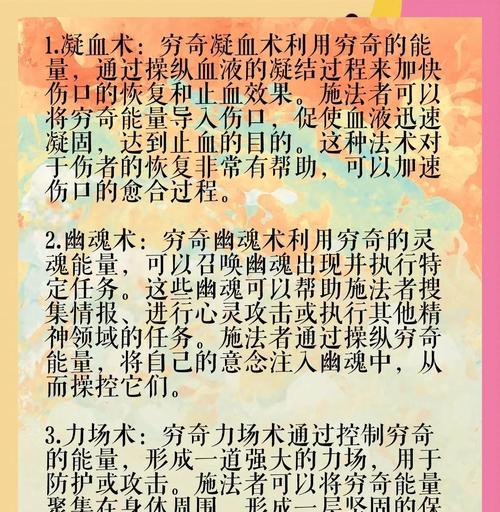 1.凝血术：穷奇凝血术利用穷奇的能
量，通过操纵血液的凝结过程来加快
伤口的恢复和止血效果。施法者可以
将穷奇能量导入伤口，促使血液迅速
凝固，达到止血的目的。这种法术对
于伤者的恢复非常有帮助，可以加速
伤口的愈合过程。
2.幽魂术：穷奇幽魂术利用穷奇的灵
魂能量，可以召唤幽魂出现并执行特
定任务。这些幽魂可以帮助施法者搜
集情报、进行心灵攻击或执行其他精
神领域的任务。施法者通过操纵穷奇
能量，将自己的意念注入幽魂中，从
而操控它们。
3.力场术：穷奇力场术通过控制穷奇
的能量，形成一道强大的力场，用于
防护或攻击。施法者可以将穷奇能量
聚集在身体周围，形成一层坚固的保